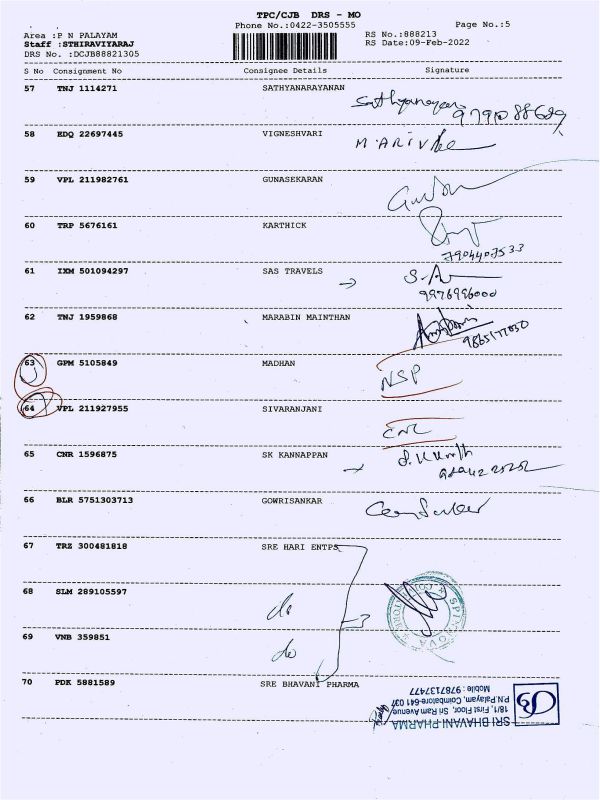 TPC/CJB DRS - MO
Phone No.:0422-3505555
Page No.:5
Area :P N PALAYAM
Staff :STHIRAVIYARAJ
DRS No. :DCJB88821305
RS No.:888213
RS Date:09-Feb-2022
S No Consignment No Consignee Details Signature
57 TNJ 1114271 SATHYANARAYANAN
Sathyanarayanan
58 EDQ 22697445 VIGNESHVARI
M.ARIV
59 VPL 211982761 GUNASEKARAN
60 TRP 5676161 KARTHICK
7904407533
61 IXM 501094297 SAS TRAVELS
S.A
9976996000
62 TNJ 1959868 MARABIN MAINTHAN
63 GPM 5105849 MADHAN
NSP
64 VPL 211927955 SIVARANJANI
CNC
65 CNR 1596875 SK KANNAPPAN
66 BLR 5751303713 GOWRISANKAR
67 TRZ 300481818 SRE HARI ENTPS
68 SLM 289105597 do
69 VNB 359851 do
70 PDK 5881589 SRE BHAVANI PHARMA
SRI BHAVANI PHARMA
18/1, First Floor, Sri Ram Avenue
P.N.Palayam, Coimbatore-641 037
Mobile : 9787137477